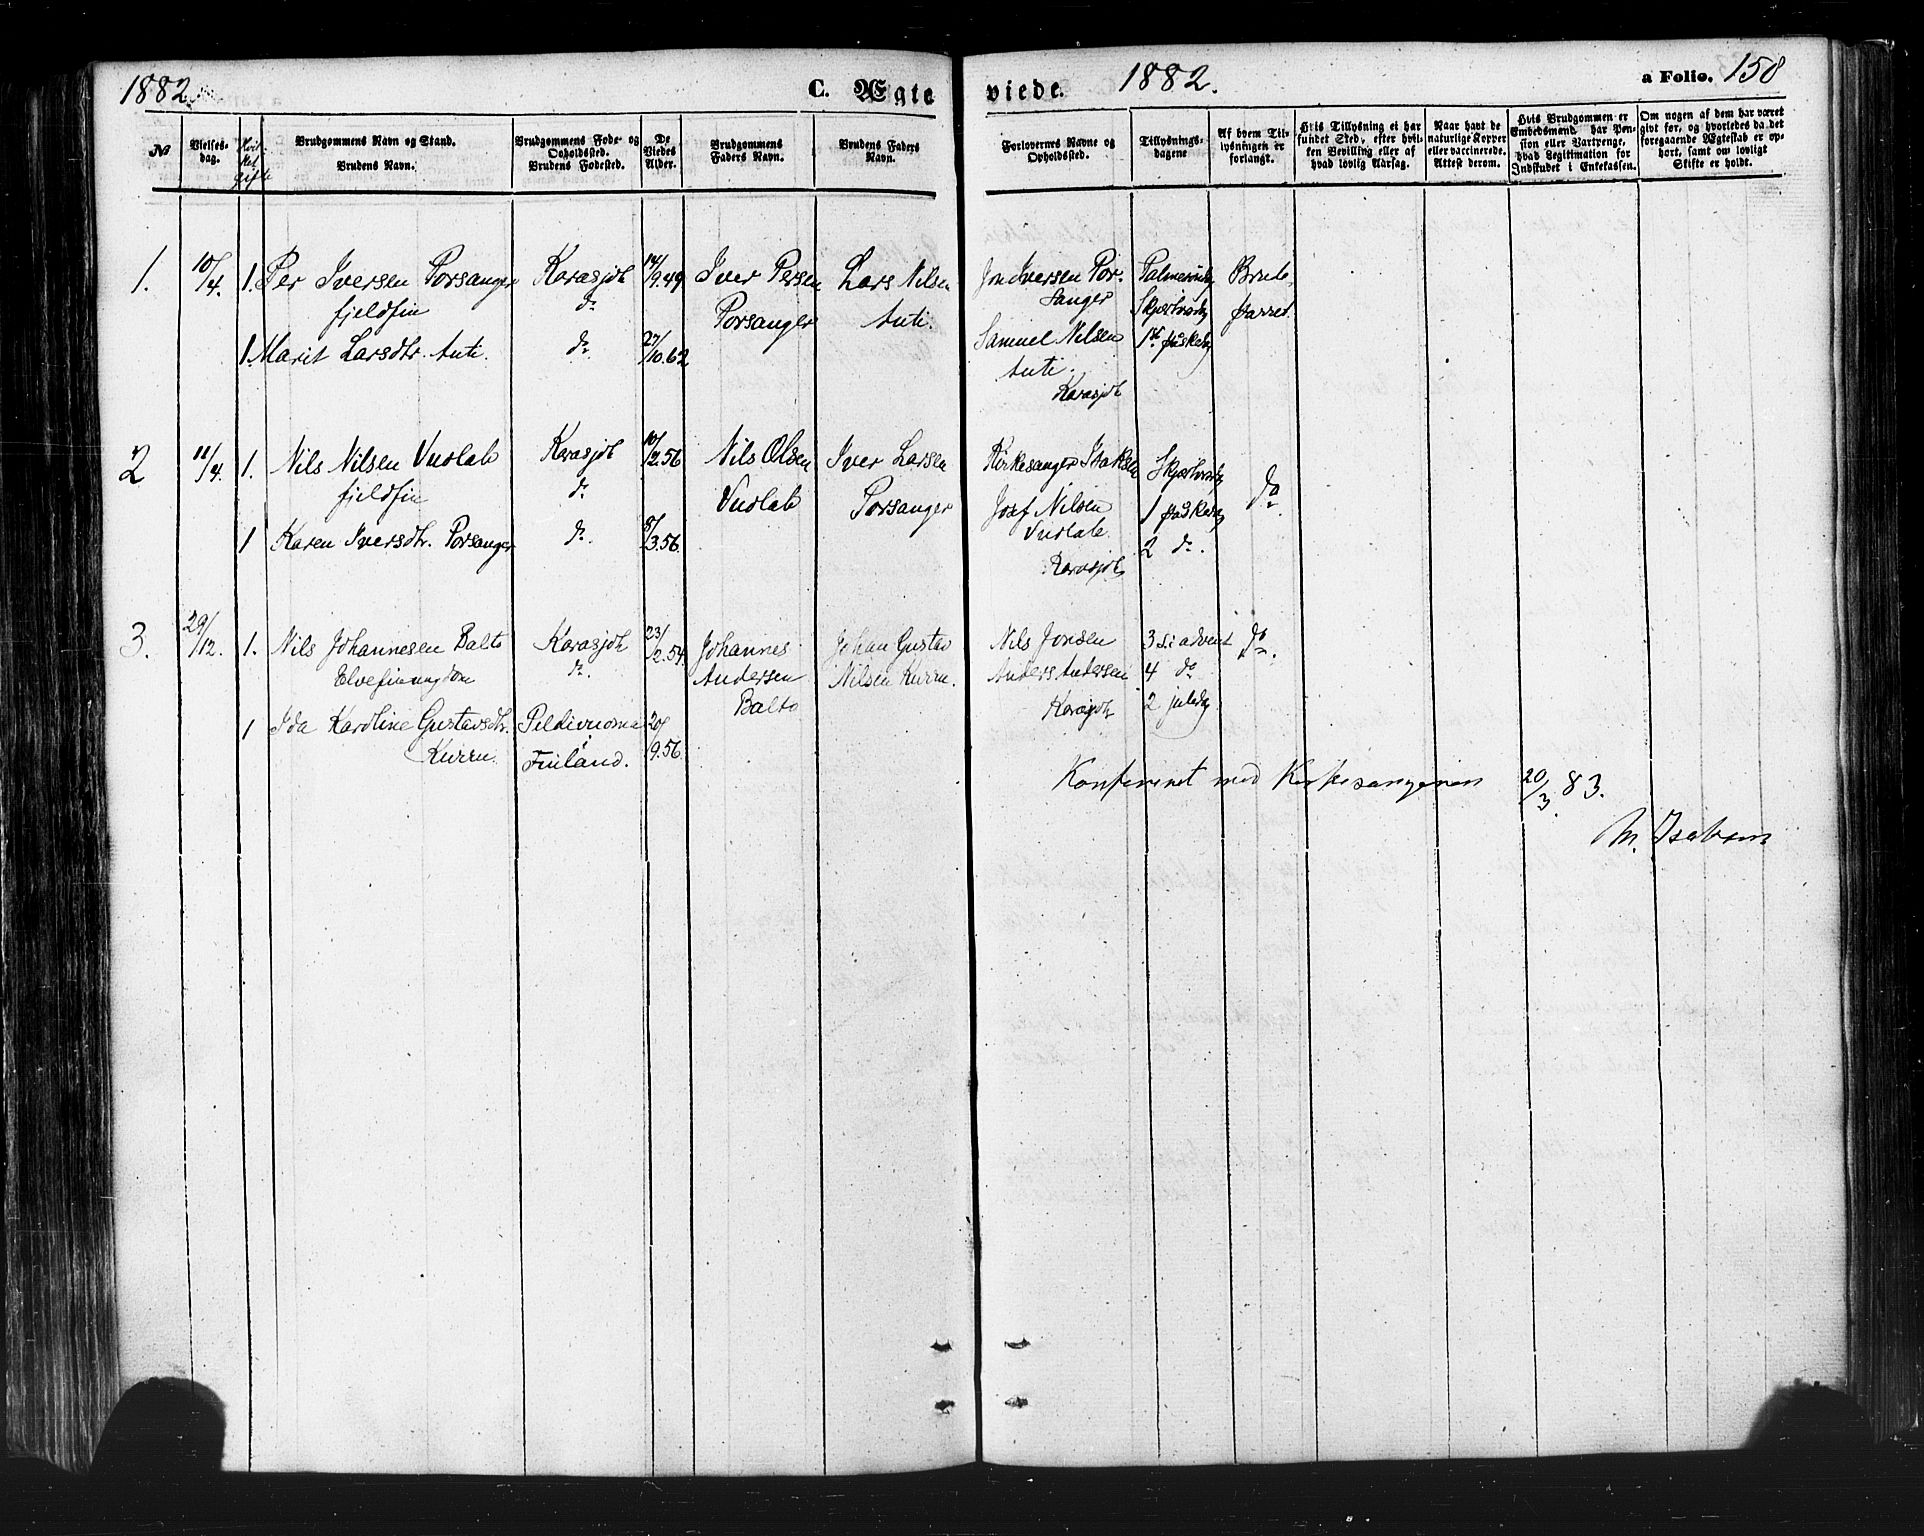 1882
C. Ægte
viede.
1882.
a Folio. 158
No
Vielses-
dag.
Hvil-
ket
Gifte
Brudgommens Navn og Stand.
Brudens Navn.
Brudgommens Føde- og
Opholdssted.
Brudens Fødested.
De
Viedes
Alder.
Brudgommens
Faders Navn.
Brudens Faders
Navn.
Forlovernes Navne og
Opholdssted.
Tillysnings-
dagene
Af hvem Til-
lysningen er
forlangt.
Hvis Tillysning ei har
fundet Sted, efter hvil-
ken Bevilling eller af
hvad lovlig Aarsag.
Naar havt de
naturlige Kopper
eller vaccinerede.
Attest derom.
Hvis Brudgommen er
Embedsmand, har Pen-
sion eller Vartpenge,
hvad Legitimation for
Indskudet i Enkekassen.
Om nogen af dem har været
gift før, og hvorledes da det
foregaaende Ægteskab er op-
hørt, samt om lovligt
Skifte er holdt.
1. 10/4. 1. Per Iversen Porsanger Karasjok 14/9.49 Iver Persen Lars Nilsen
fjeldfin do Porsanger Anti.
1. Marit Larsdtr. Anti. do. 27/10.62
Jon Iversen Por-
sanger
Samuel Nilsen
Anti.
Karasjok
Palmesøndg
Skjærtorsdg
1ste påskedg
Brude-
parret.
2 11/4. 1. Nils Nilsen Vuolab Karasjok 10/12.56 Nils Olsen Iver Larsen
fjeldfin do. Vuolab Porsanger
1 Karen Iversdtr. Porsanger do. 8/3.56.
Kirkesanger Isaksen
Josef Nilsen
Vuolab.
Karasjok
Skjærtorsdg
1 påskedg
2 do.
do.
3. 29/12. 1. Nils Johannesen Balto Karasjok 23/2.54. Johannes Johan Gustav
Elvefin ungdom do. Andersen Nilsen Kurru.
Balto
1 Ida Karoline Gustavsdtr. Peldivuoma 20/9.56
Kurru. Finland.
Nils Jonsen
Anders Andersen
Karasjok
3 s. i advent
4 do
2 juledg
do.
Konfereret med Kirkesangeren 20/3 83.
M. Isaksen